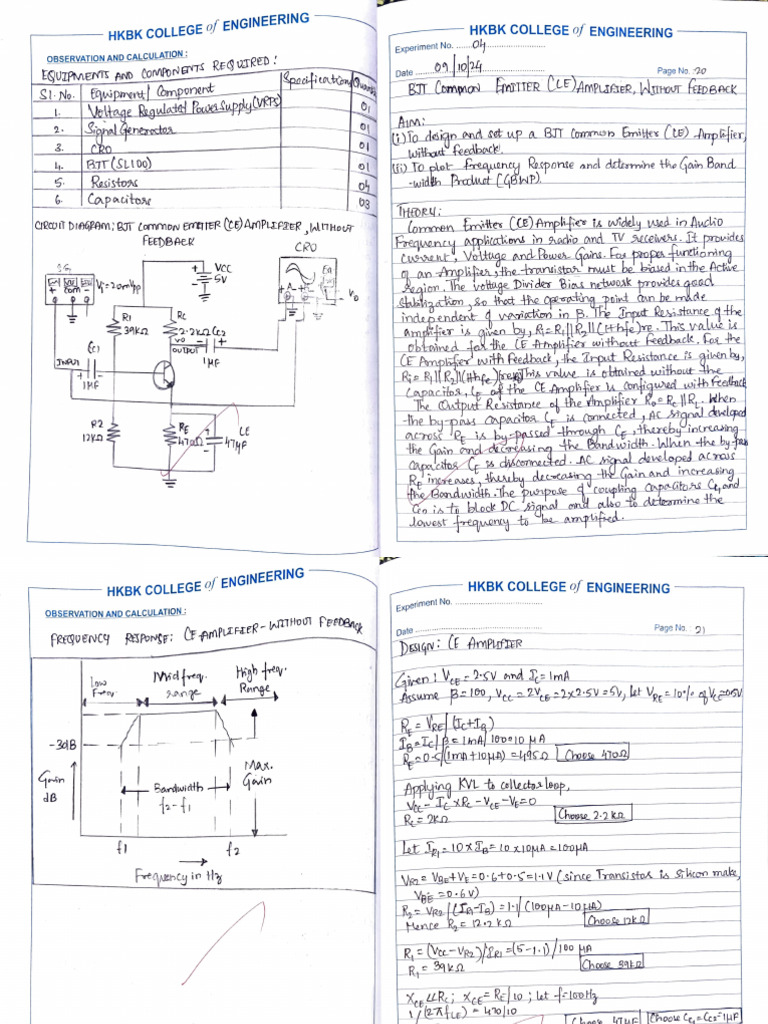 HKBK COLLEGE of ENGINEERING
OBSERVATION AND CALCULATION :
EQUIPMENTS AND COMPONENTS REQUIRED:
Sl. No. Equipment/ Component Specification
1. Voltage Regulated Power Supply (VRPS) 01
2. Signal Generator 01
3. CRO 01
4. BJT (SL100) 01
5. Resistors 04
6. Capacitors 03
CIRCUIT DIAGRAM: BJT COMMON EMITTER (CE) AMPLIFIER, WITHOUT
FEEDBACK
CRO
VCC
5V
Vi=20mVpp
R1
39KΩ
RC
2.2KΩ
CC2
1μF
VO
OUTPUT
VO
INPUT
CC1
1μF
R2
12KΩ
RE
470Ω
CE
47μF
HKBK COLLEGE of ENGINEERING
Experiment No. 04
Date 09/10/24 Page No. 20
BJT COMMON EMITTER (CE) AMPLIFIER, WITHOUT FEEDBACK
AIM:
(i) To design and set up a BJT Common Emitter (CE) Amplifier,
without feedback.
(ii) To plot Frequency Response and determine the Gain Band
-width Product (GBWP).
THEORY:
Common Emitter (CE) Amplifier is widely used in Audio
Frequency applications in radio and TV receivers. It provides
current, Voltage and Power Gains. For proper functioning
of an Amplifier, the transistor must be biased in the Active
Region. The voltage Divider Bias network provides good
stabilization, so that the operating point can be made
independent of variation in β. The Input Resistance of the
amplifier is given by, Ri=R1||R2||(1+hfe)re. This value is
obtained for the CE Amplifier without feedback. For the
CE Amplifier with Feedback, the Input Resistance is given by,
Ri=R1||R2||(1+hfe) This value is obtained without the
Capacitor, CE of the CE Amplifier is configured with Feedback
The Output Resistance of the Amplifier Ro=Rc||RL. When
the by-pass capacitor CE is connected, AC signal developed
across RE is by-passed through CE, thereby increasing
the Gain and decreasing the Bandwidth. When the by-pass
capacitor CE is disconnected. AC signal developed across
RE increases, thereby decreasing the Gain and increasing
the Bandwidth. The purpose of coupling Capacitors CC1 and
CC2 is to block DC signal and also to determine the
lowest frequency to be amplified.
HKBK COLLEGE of ENGINEERING
OBSERVATION AND CALCULATION :
FREQUENCY RESPONSE: CE-AMPLIFIER-WITHOUT FEEDBACK
low Freq. Mid freq. range High freq. Range
-3dB
Gain
dB
Bandwidth
f2-f1
Max.
Gain
f1 f2
Frequency in Hz
HKBK COLLEGE of ENGINEERING
Experiment No.
Date Page No. 21
DESIGN: CE AMPLIFIER
Given: VCE=2.5V and IC=1mA
Assume β=100, VCC=2VCE=2x2.5V=5V, let VRE=10% of VCC=0.5V
RE=VRE/(IC+IB)
IB=IC/β=1mA/100=10μA
RE=0.5/(1mA+10μA)=495Ω Choose 470Ω
Applying KVL to collector loop,
VCC-IC×RC-VCE-VE=0
RC=2KΩ Choose 2.2KΩ
Let IR1=10×IB=10×10μA=100μA
VR2=VBE+VE=0.6+0.5=1.1V (since Transistor is silicon make,
VBE=0.6V)
R2=VR2/(IR1-IB)=1.1/(100μA-10μA)
Hence R2=12.2KΩ Choose 12KΩ
R1=(VCC-VR2)/IR1=(5-1.1)/100μA
R1=39KΩ Choose 39KΩ
XCE<<RE; XCE=RE/10; let f=100Hz
1/(2πfCE)=470/10 Choose 47μF Choose CC1=CC2=1μF